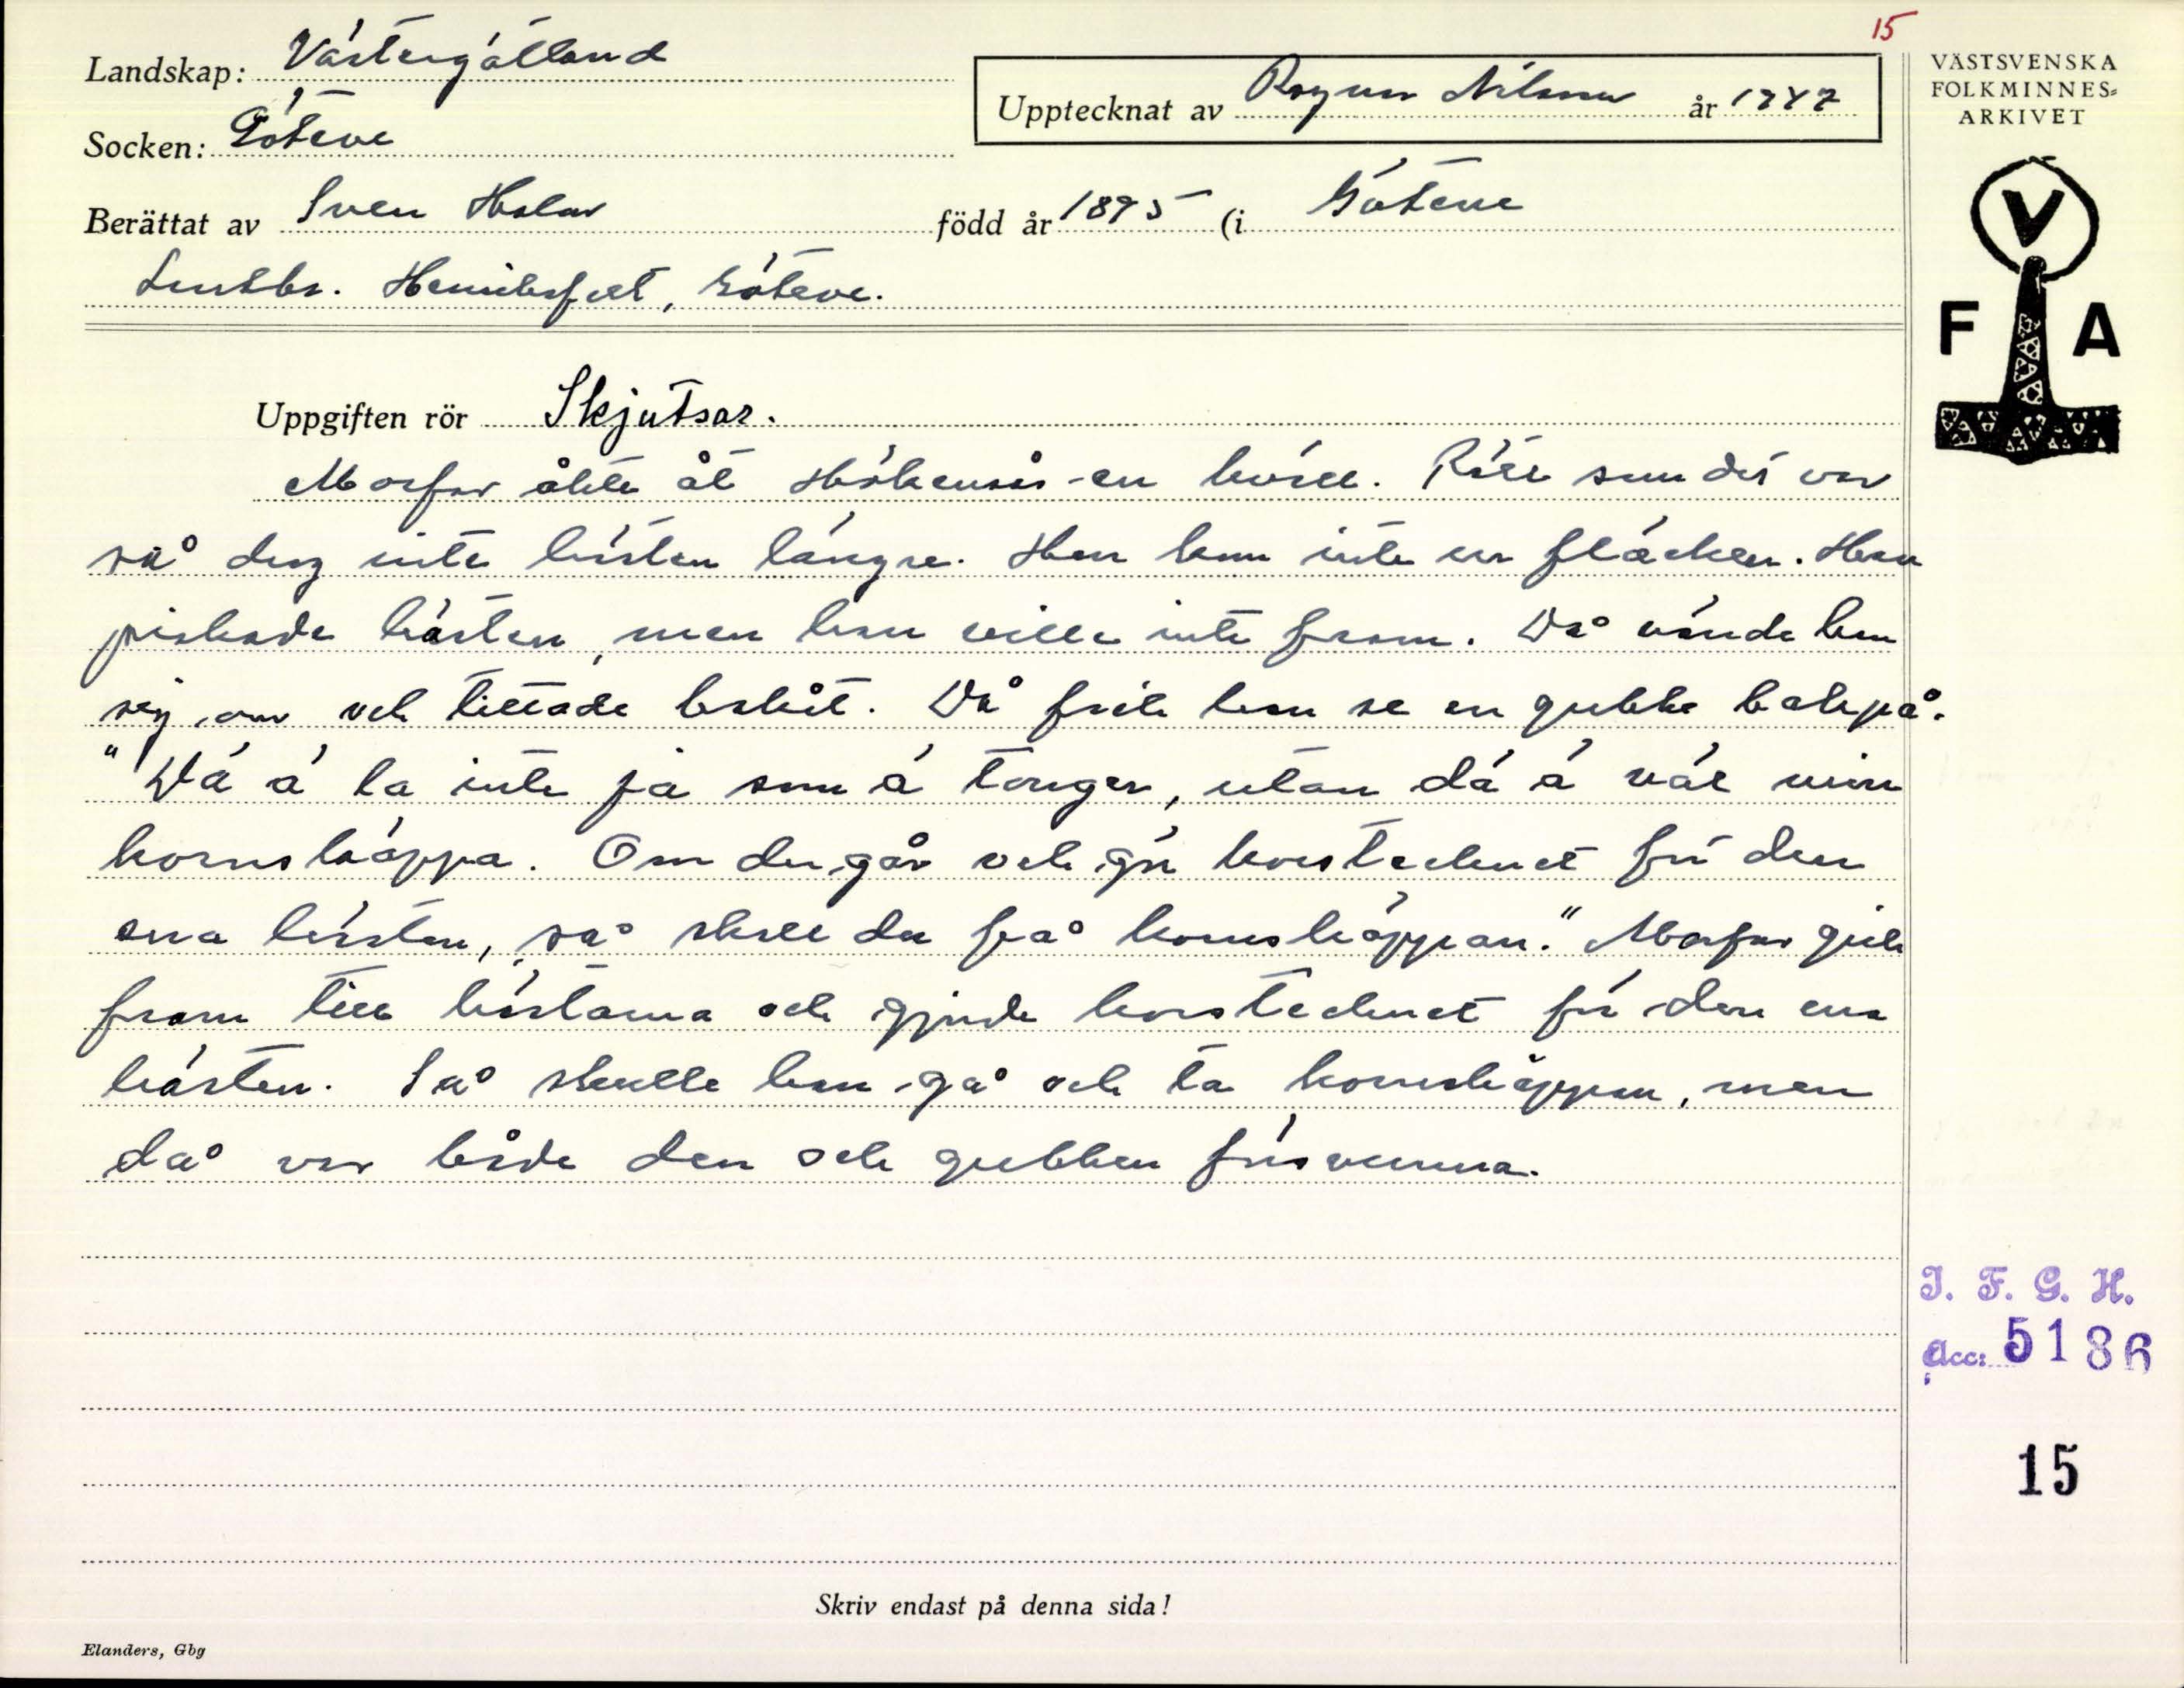 15
Landskap: Västergötland
Upptecknat av Ragnar Nilsson år 1947
VÄSTSVENSKA
FOLKMINNES-
ARKIVET
Socken: Göteve
Berättat av Sven Holm född år 1895 (i Göteve
Lantbr. Göteve.
V
F A
Uppgiften rör Skjutsar.
Morfar åkte åt Hökensås en kväll. Rätt som det var
så drog inte hästen längre. Han kom inte ur fläcken. Han
piskade hästen, men han ville inte fram. Då vände han
sig om och tittade bakåt. Då fick han se en gubbe bakpå.
"Dä ä la inte ja som ä tonger, utan dä ä väl min
kornskäppa. Om du går och gör korstecknet för den
ena hästen, så skall du få kornskäppan." Morfar gick
fram till hästarna och gjorde korstecknet för den ena
hästen. Så skulle han gå och ta kornskäppan, men
då var både den och gubben försvunna.
I. F. G. H.
Acc: 5186
15
Skriv endast på denna sida!
Elanders, Gbg